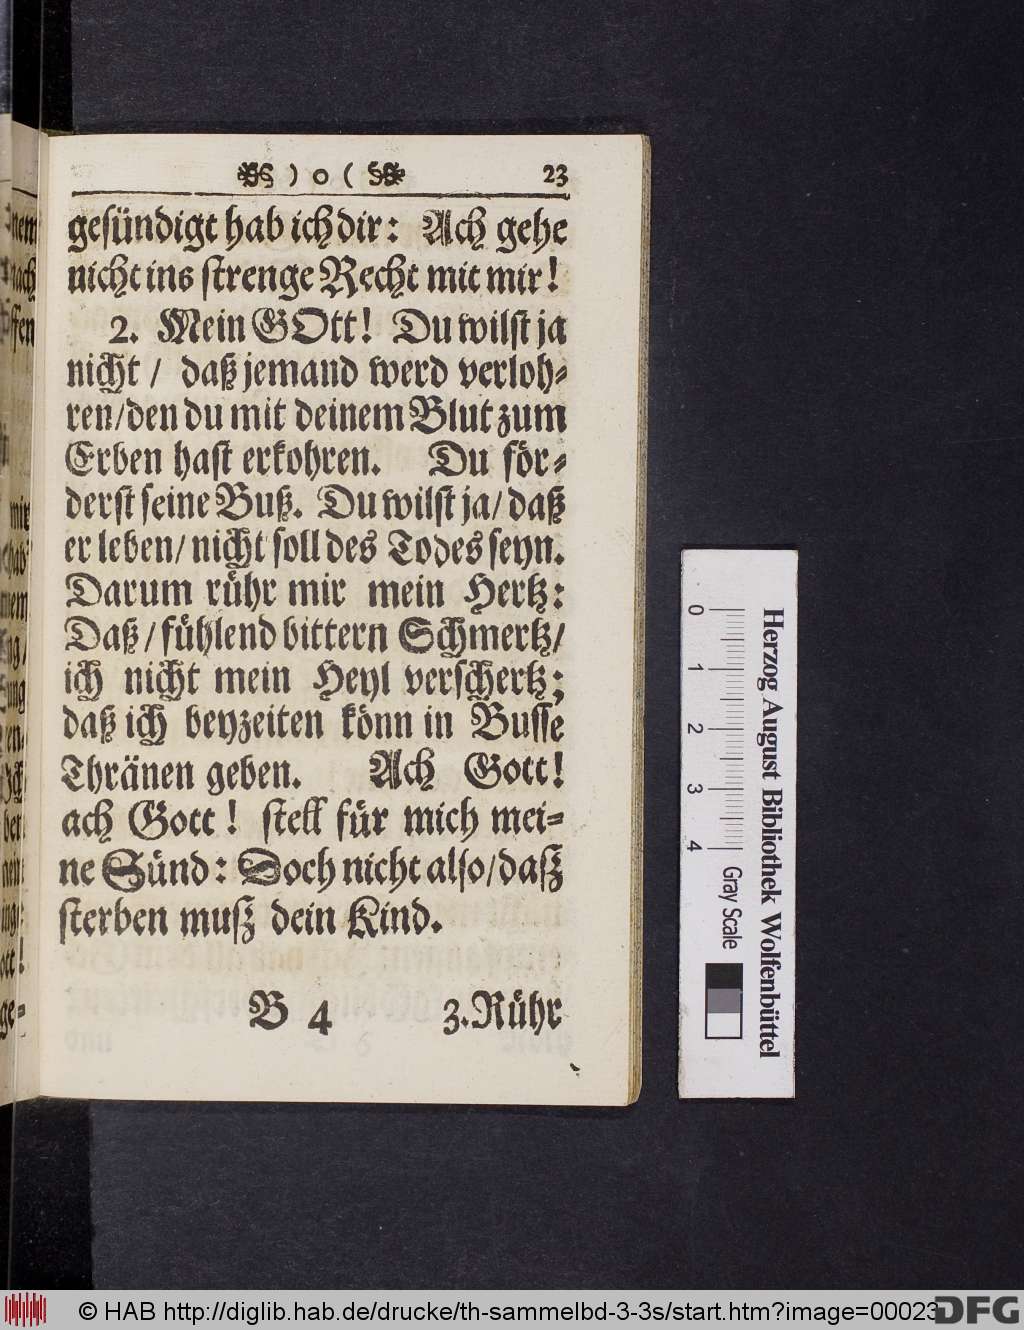 ) o ( 23
gesündigt hab ich dir: Ach gehe
nicht ins strenge Recht mit mir!
2. Mein GOtt! Du wilst ja
nicht / daß jemand werd verloh-
ren/den du mit deinem Blut zum
Erben hast erkohren. Du för-
derst seine Buß. Du wilst ja/ daß
er leben/ nicht soll des Todes seyn.
Darum rühr mir mein Hertz:
Daß / fühlend bittern Schmertz/
ich nicht mein Heyl verschertz;
daß ich beyzeiten könn in Busse
Thränen geben. Ach Gott!
ach Gott! stell für mich mei-
ne Sünd: Doch nicht also/daß
sterben muß dein Kind.
B 4 3.Rühr
0 1 2 3 4
Gray Scale
Herzog August Bibliothek Wolfenbüttel
© HAB http://diglib.hab.de/drucke/th-sammelbd-3-3s/start.htm?image=00023
DFG